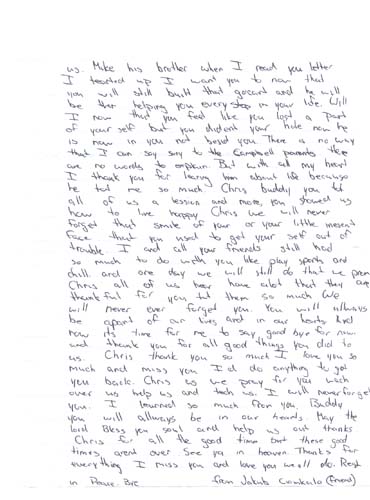 us. Make his brother when I read you letter
I teached up I want you to now that
you will still built that gocard and he will
be ther helping you every step in your life. Will
I now that you feel like you lost a part
of your self but you dident your hole now he
is now in you not besid you. There is no way
that I can say sory to the Campbell parents ther
are no words to explain But with all my heart
I thank you for learing him about life becauso
he tot me so much Chris buddy you tot
all of us a lession and more, you showed us
how to live happy. Chris we will never
forget that smile of your or your little inesent
face that you used to get your self out of
trouble I and all your friends still had
so much to do with you like play sports and
chill. and one day we will still do that we prom
Chris all of us hear have alot that they are
thankful for you tot them so much We
will never ever forget you. You will allways
be apart of our lives and in our hearts. And
now its time for me to say good bye for now
and thank you for all good things you did to
us. Chris thank you so much I love you so
much and miss you I'd do anything to get
you back. Chris as we pray for you wach
over us help us and tech us. I will never forget
you. I learnest so much from you. Buddy
you will allways be in our hearts May the
lord Bless you soul and help us out thanks
Chris for all the good time but these good
times arent over See ya in heaven. Thanks for
everything I miss you and love you we all do. Rest
in Peace. Bye from Jakub (friend)